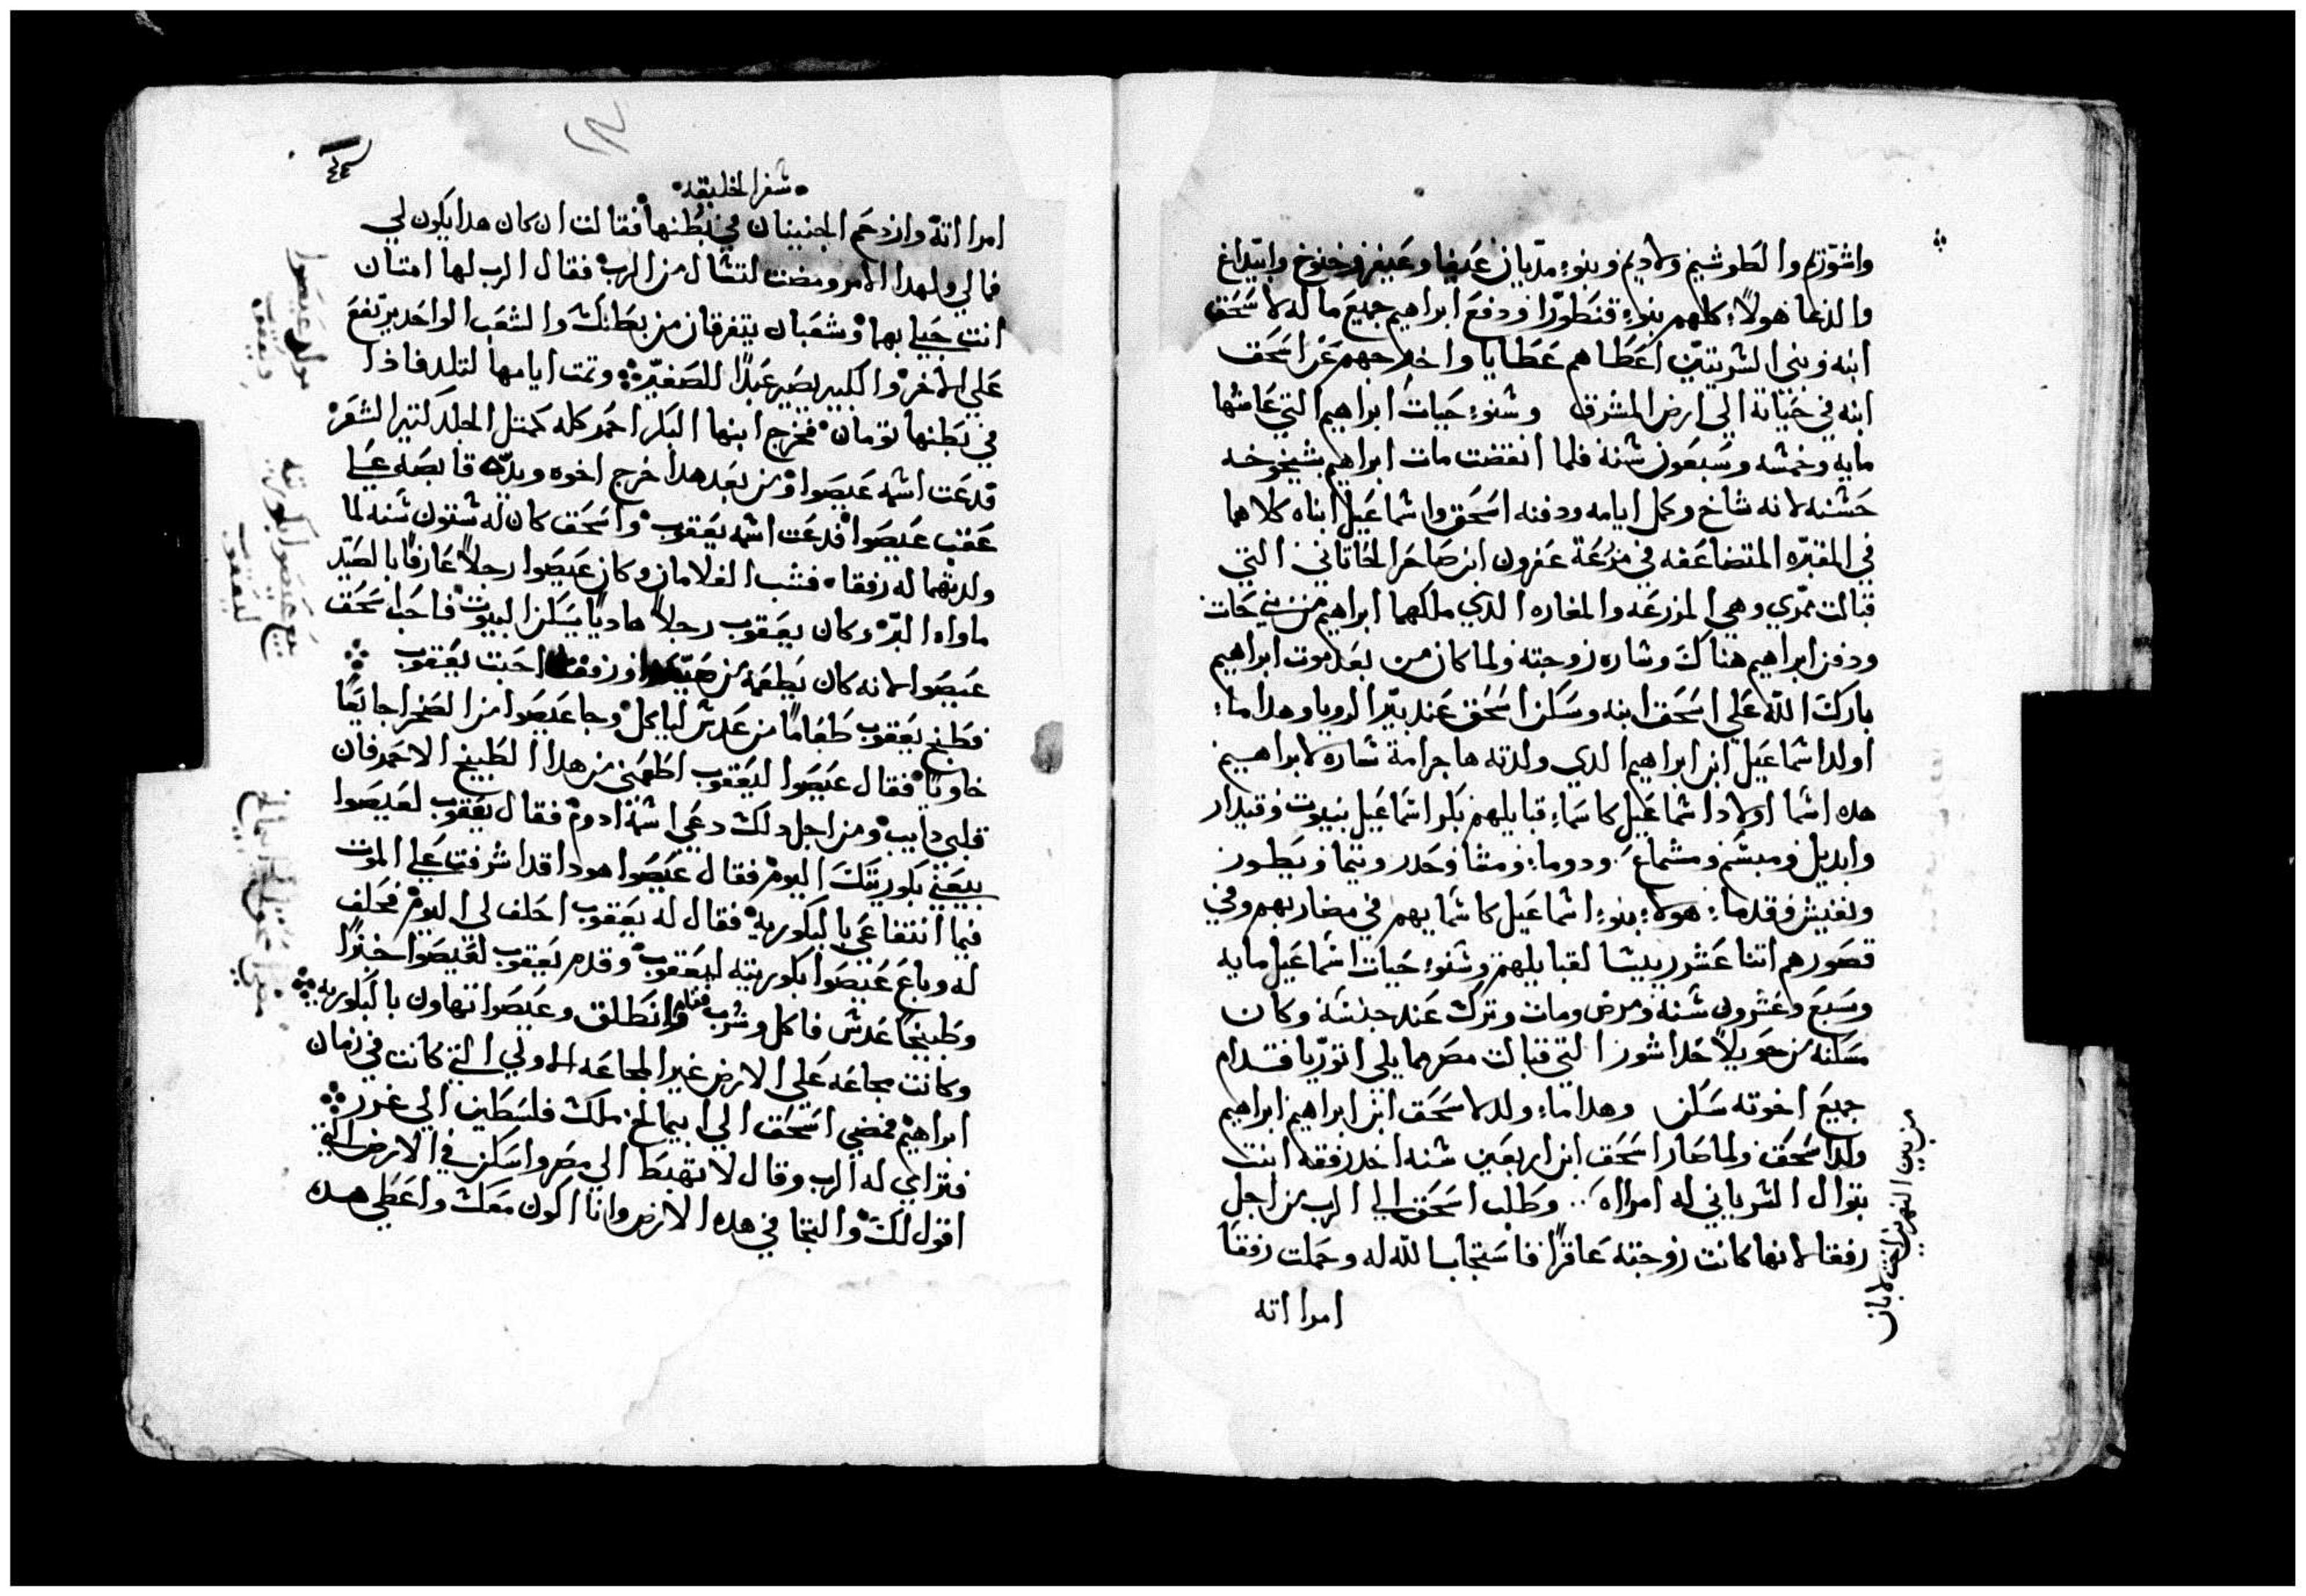 واشوزيم والطوشيم ولاديم وبنوا مديان عيفا وعيفر وحنوخ وابيداغ
والدعا هولاء كلهم بنوا قنطورا ودفع ابراهيم جميع ماله لاسحق
ابنه وبني السريتين اعطاهم عطايا واخرجهم عن اسحق
ابنه في حياته الي ارض المشرق وسنوا حيات ابراهيم التي عاشها
مايه وخمسه وسبعون سنة فلما انقضت مات ابراهيم بشيخوخه
حسنه لانه شاخ وكمل ايامه ودفنه اسحق واسماعيل ابناه كلاهما
في المقبره المتضاعفه في مزرعة عفرون ابن صاحر الحاتاني التي
قبالت ممري وهي المزرعه والمغاره الدي ملكهما ابراهيم من بني حات
ودفن ابراهيم هناك وساره زوجته ولما كان من بعد موت ابراهيم
بارك الله علي اسحق ابنه وسكن اسحق عند بير الرويا وهدا ما
اولد اسماعيل ابن ابراهيم الدي ولدته هاجر امة ساره لابراهيم
هده اسما اولاد اسماعيل كاسماء قبايلهم بكر اسماعيل بنيوت وقيدار
وابديل ومبسم ومشماع ودوما ومشا وحدر وتيما ويطور
ونفيش وقدما هولاء بنوا اسماعيل كاسمايهم في مضاربهم وفي
قصورهم اتنا عشر رييسا لقبايلهم وسنوا حيات اسماعيل مايه
وسبع وعشرون سنه ومرض ومات وترك عند جنسه وكان
مسكنه من حويلا حدا شور التي قبالت مصر مما يلي اتوريا قدام
جميع اخوته سكن وهدا ما ولد لاسحق ابن ابراهيم ابراهيم
ولد اسحق ولما صار اسحق ابن اربعين سنه اخد رفقه ابنت
بتوال السرياني له امراه وطلب اسحق الي الرب من اجل
رفقا لانها كانت زوجته عاقرا فاستجاب الله له وحملت رفقا
امرااته
من بين النهرين اخت لابان
٤٤
سفر الخليقه
امرااته وازدحم الجنينان في بطنها فقالت ان كان هدا يكون لي
فمالي ولهدا الامر ومضت لتسال من الرب فقال الرب لها امتان
انت حبلي بهما وشعبان يتفرقان من بطنك والشعب الواحد يرتفع
علي الاخر والكبير يصير عبدا للصغير وتمت ايامها لتلد فاذا
في بطنها تومان فخرج ابنها البكر احمر كله كمتل الجلد كتير الشعر
فدعت اسمه عيصوا ومن بعد هدا خرج اخوه ويده قابضه علي
عقب عيصوا فدعت اسمه يعقوب واسحق كان له ستون سنه لما
ولدتهما له رفقا فشب الغلامان وكان عيصوا رجلا عارفا بالصيد
ماواه البر وكان يعقوب رجلا هاديا يسكن البيوت فاحب اسحق
عيصوا لانه كان يطعمه من صيده ورفقا احبت يعقوب
فطبخ يعقوب طعاما من عدس لياكل وجا عيصوا من الصحرا جايعا
خاويا فقال عيصوا ليعقوب اطعمني من هدا الطبيخ الاحمر فان
قلبي دايب ومن اجل دلك دعي اسمه ادوم فقال يعقوب لعيصوا
بيعني بكوريتك اليوم فقال عيصوا هودا قد اشرفت علي الموت
فيما انتفاعي بالبكوريه فقال له يعقوب احلف لي اليوم فحلف
له وباع عيصوا بكوريته ليعقوب وقدم يعقوب لعيصوا خبزا
وطبيخا عدس فاكل وشرب وقام وانطلق وعيصوا تهاون بالبكوريه
وكانت مجاعه علي الارض غير المجاعه الاولي التي كانت في زمان
ابراهيم فمضي اسحق الي ابيمالخ ملك فلسطين الي غرر
فتراي له الرب وقال لا تهبط الي مصر واسكن في الارض التي
اقول لك والتجا في هده الارض وانا اكون معك واعطي هده
مولد عيصوا
ويعقوب
بيع عيصوا بكوريته
ليعقوب